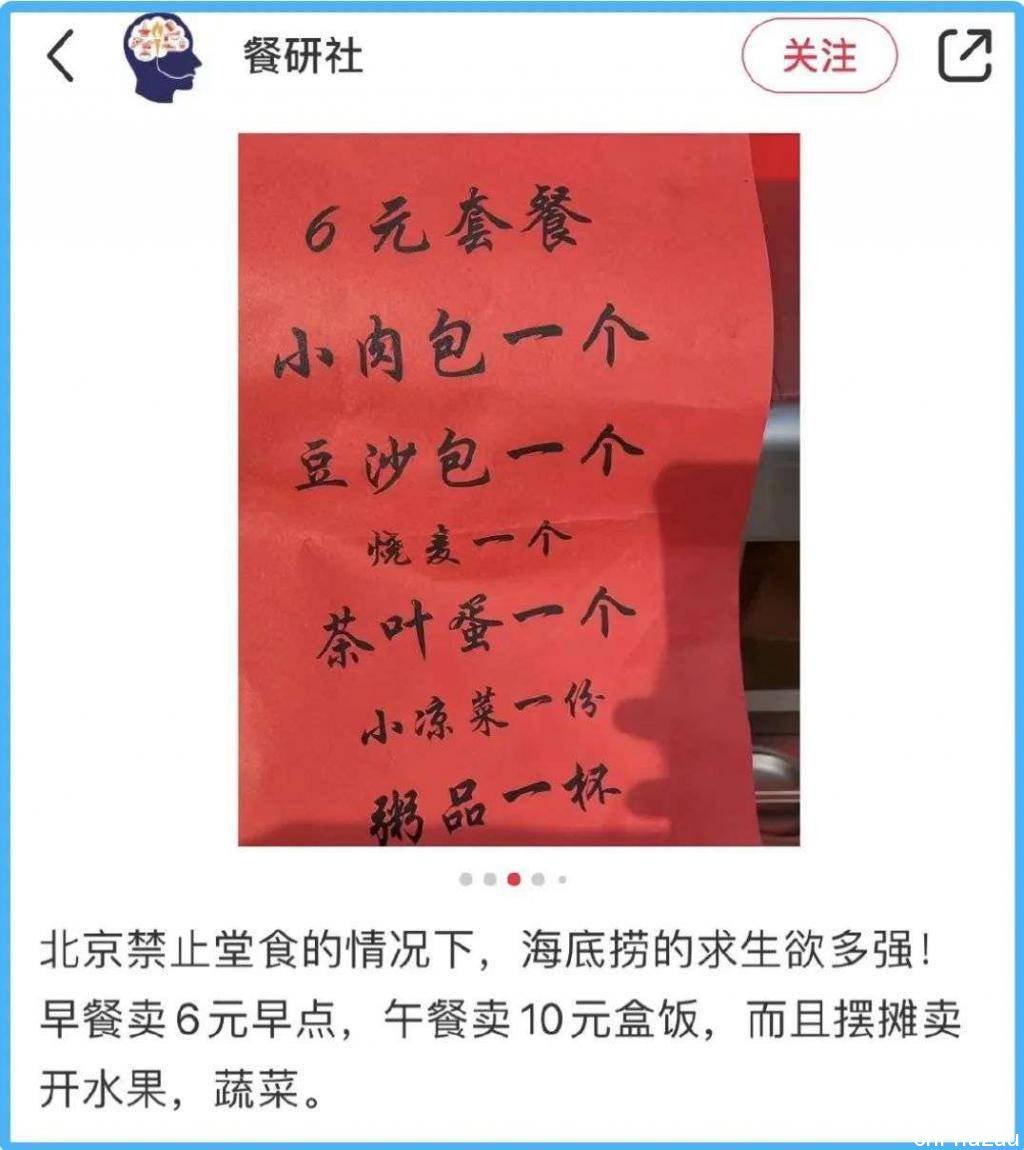 餐研社
关注
6元套餐
小肉包一个
豆沙包一个
烧麦一个
茶叶蛋一个
小凉菜一份
粥品一杯
北京禁止堂食的情况下，海底捞的求生欲多强！
早餐卖6元早点，午餐卖10元盒饭，而且摆摊卖
开水果，蔬菜。